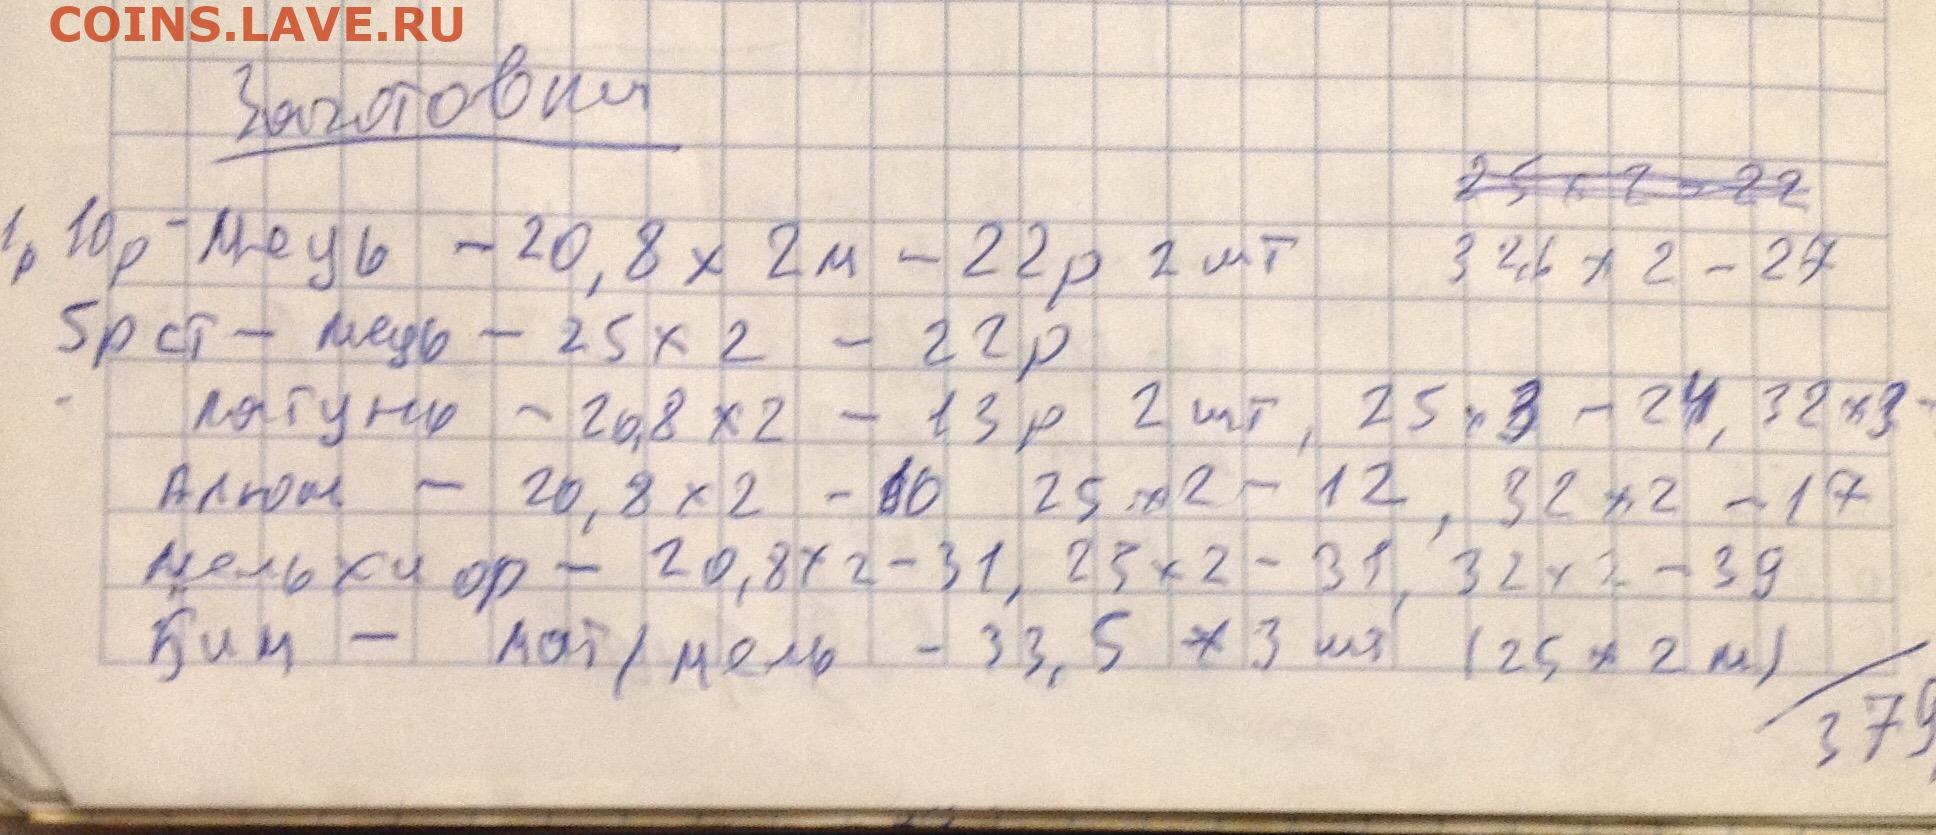 COINS.LAVE.RU
Заготовки
25 x 2 - 22
1р 10р - Медь - 20,8 x 2м - 22р 2 шт 32,6 x 2 - 27
5р ст - медь - 25 x 2 - 22р
- латунь - 20,8 x 2 - 13р 2 шт, 25 x 3 - 24, 32 x 3 -
Алюм - 20,8 x 2 - 10 25 x 2 - 12, 32 x 2 - 17
мельхиор - 20,8 x 2 - 31, 25 x 2 - 31, 32 x 2 - 39
Бим - лат/мель - 33,5 x 3 шт (25 x 2 м)
379